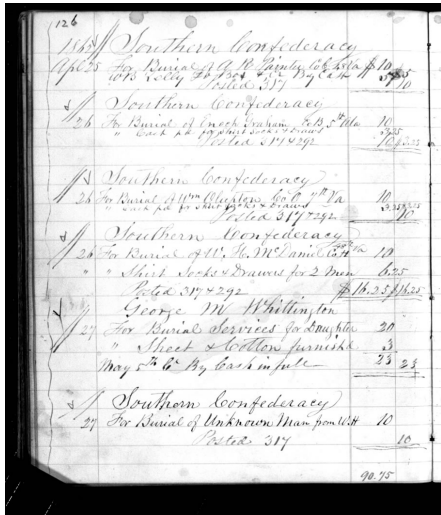 126
1862 Southern Confederacy
Apl 25 For Burial of A Painter Co Va $ 10
By Cash
Posted 317 10
Southern Confederacy
26 For Burial of Enoch Graham Co B 5th Ala 10
" Cash pd for Shirt Socks & Draws 3.25
Posted 317 & 292 10
Southern Confederacy
26 For Burial of Wm Co 7th Va 10
" Cash pd for Shirt Socks & Draws 3.25
Posted 317 & 292 10
Southern Confederacy
26 For Burial of W. H. McDaniel Co H Va 10
" " Shirt Socks & Drawers for 2 Men 6.25
Posted 317 & 292 $ 16.25 $ 16.25
George M Whittington
27 For Burial Services for Daughter 20
" Sheet & Cotton furnishd 3
May 5th Cr By Cash in full 23 23
Southern Confederacy
27 For Burial of Unknown Man from W.H 10
Posted 317 10
90.75